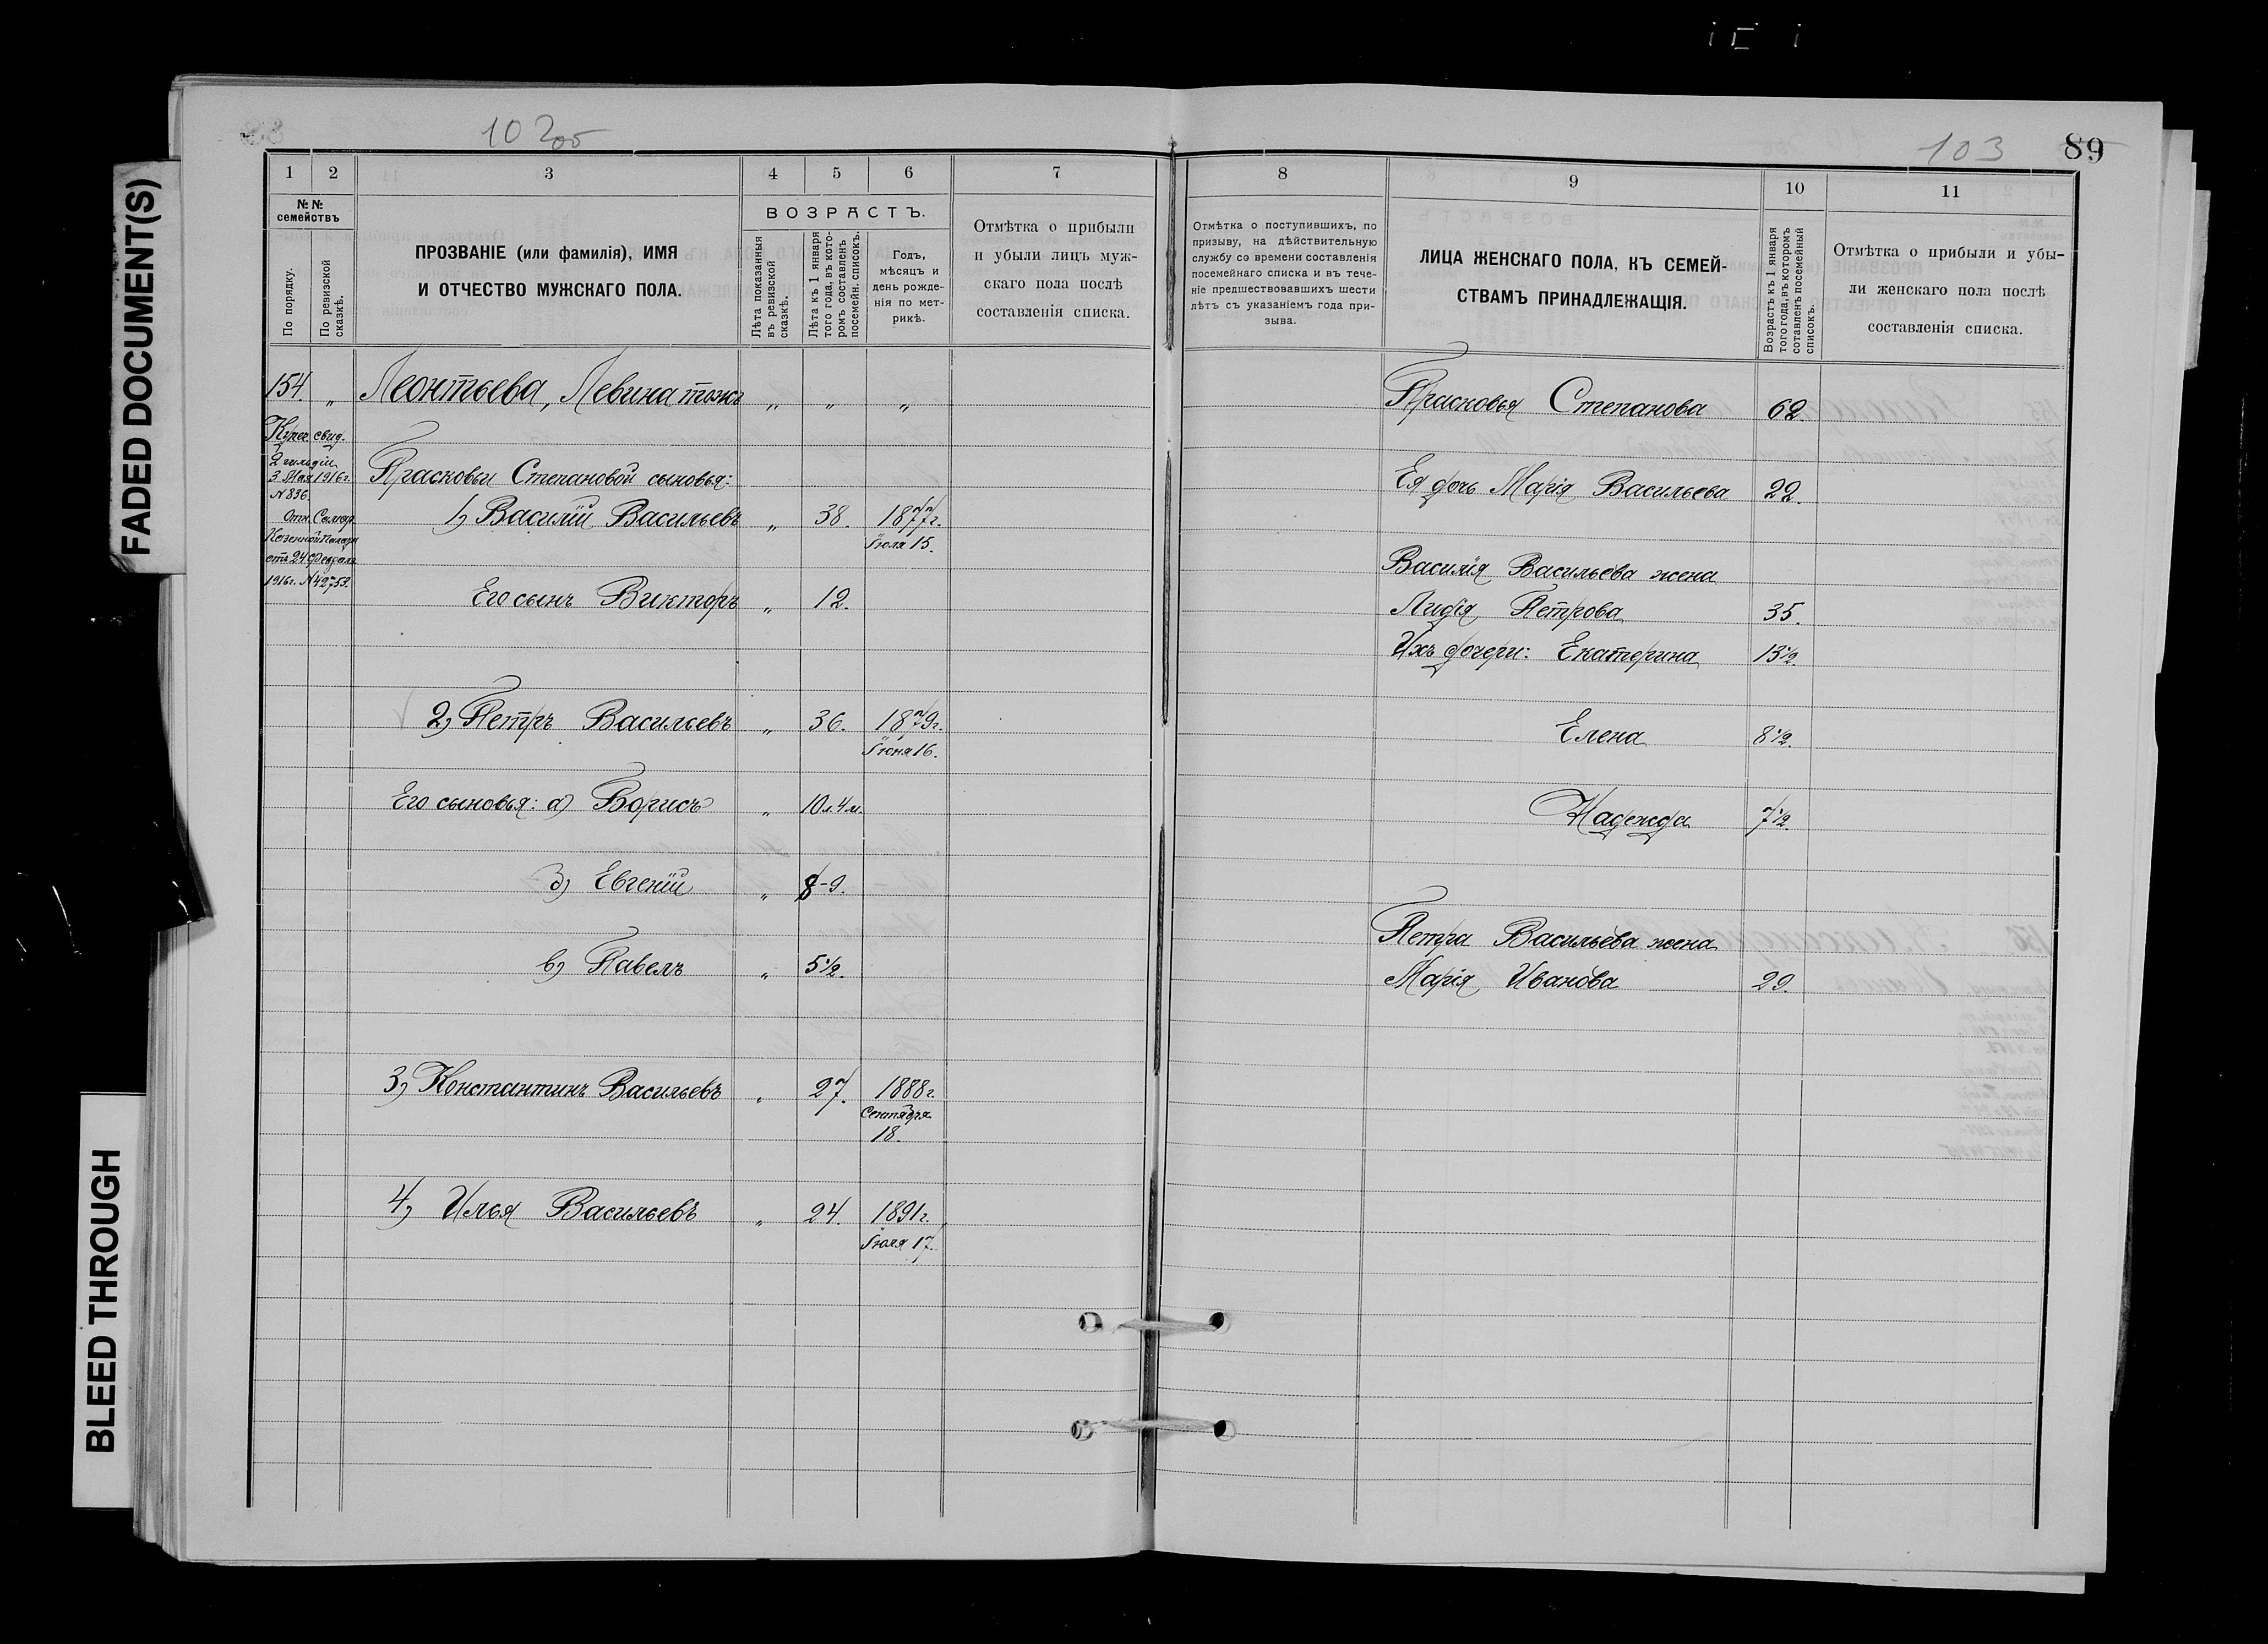 FADED DOCUMENT(S)
BLEED THROUGH
102об
103
89
1 2 3 4 5 6 7
№№ семействъ
По порядку.
По ревизской сказкѣ.
ПРОЗВАНІЕ (или фамилія), ИМЯ
И ОТЧЕСТВО МУЖСКАГО ПОЛА.
ВОЗРАСТЪ.
Лѣта показанныя
въ ревизской
сказкѣ.
Лѣта къ 1 января
того года, въ кото-
ромъ составленъ
посемейн. списокъ.
Годъ,
мѣсяцъ и
день рожде-
нія по мет-
рикѣ.
Отмѣтка о прибыли
и убыли лицъ муж-
скаго пола послѣ
составленія списка.
154. „ Леонтьева, Левина тожъ „ „ „
Купеч. свид.
2 гильдіи
3 Мая 1916 г.
№ 836.
Отн. Самар.
Казенной Палаты
отъ 24 Февраля
1916 г. № 42752.
Прасковьи Степановой сыновья:
1) Василій Васильевъ „ 38. 1877 г.
Іюля 15.
Его сынъ Викторъ „ 12.
2) Петръ Васильевъ „ 36. 1879 г.
Іюня 16.
Его сыновья: а) Борисъ „ 10 л. 4 м.
б) Евгеній „ 8-9.
в) Павелъ „ 5½.
3) Константинъ Васильевъ „ 27. 1888 г.
Сентября
18.
4) Илья Васильевъ „ 24. 1891 г.
Іюля 17.
8 9 10 11
Отмѣтка о поступившихъ, по
призыву, на дѣйствительную
службу со времени составленія
посемейнаго списка и въ тече-
ніе предшествовавшихъ шести
лѣтъ съ указаніемъ года при-
зыва.
ЛИЦА ЖЕНСКАГО ПОЛА, КЪ СЕМЕЙ-
СТВАМЪ ПРИНАДЛЕЖАЩІЯ.
Возрастъ къ 1 января
того года, въ которомъ
сотавленъ посемейный
списокъ.
Отмѣтка о прибыли и убы-
ли женскаго пола послѣ
составленія списка.
Прасковья Степанова 62.
Ея дочь Марія Васильева 22.
Василія Васильева жена
Лидія Петрова 35.
Ихъ дочери: Екатерина 13½.
Елена 8½.
Надежда 7½.
Петра Васильева жена
Марія Иванова 29.